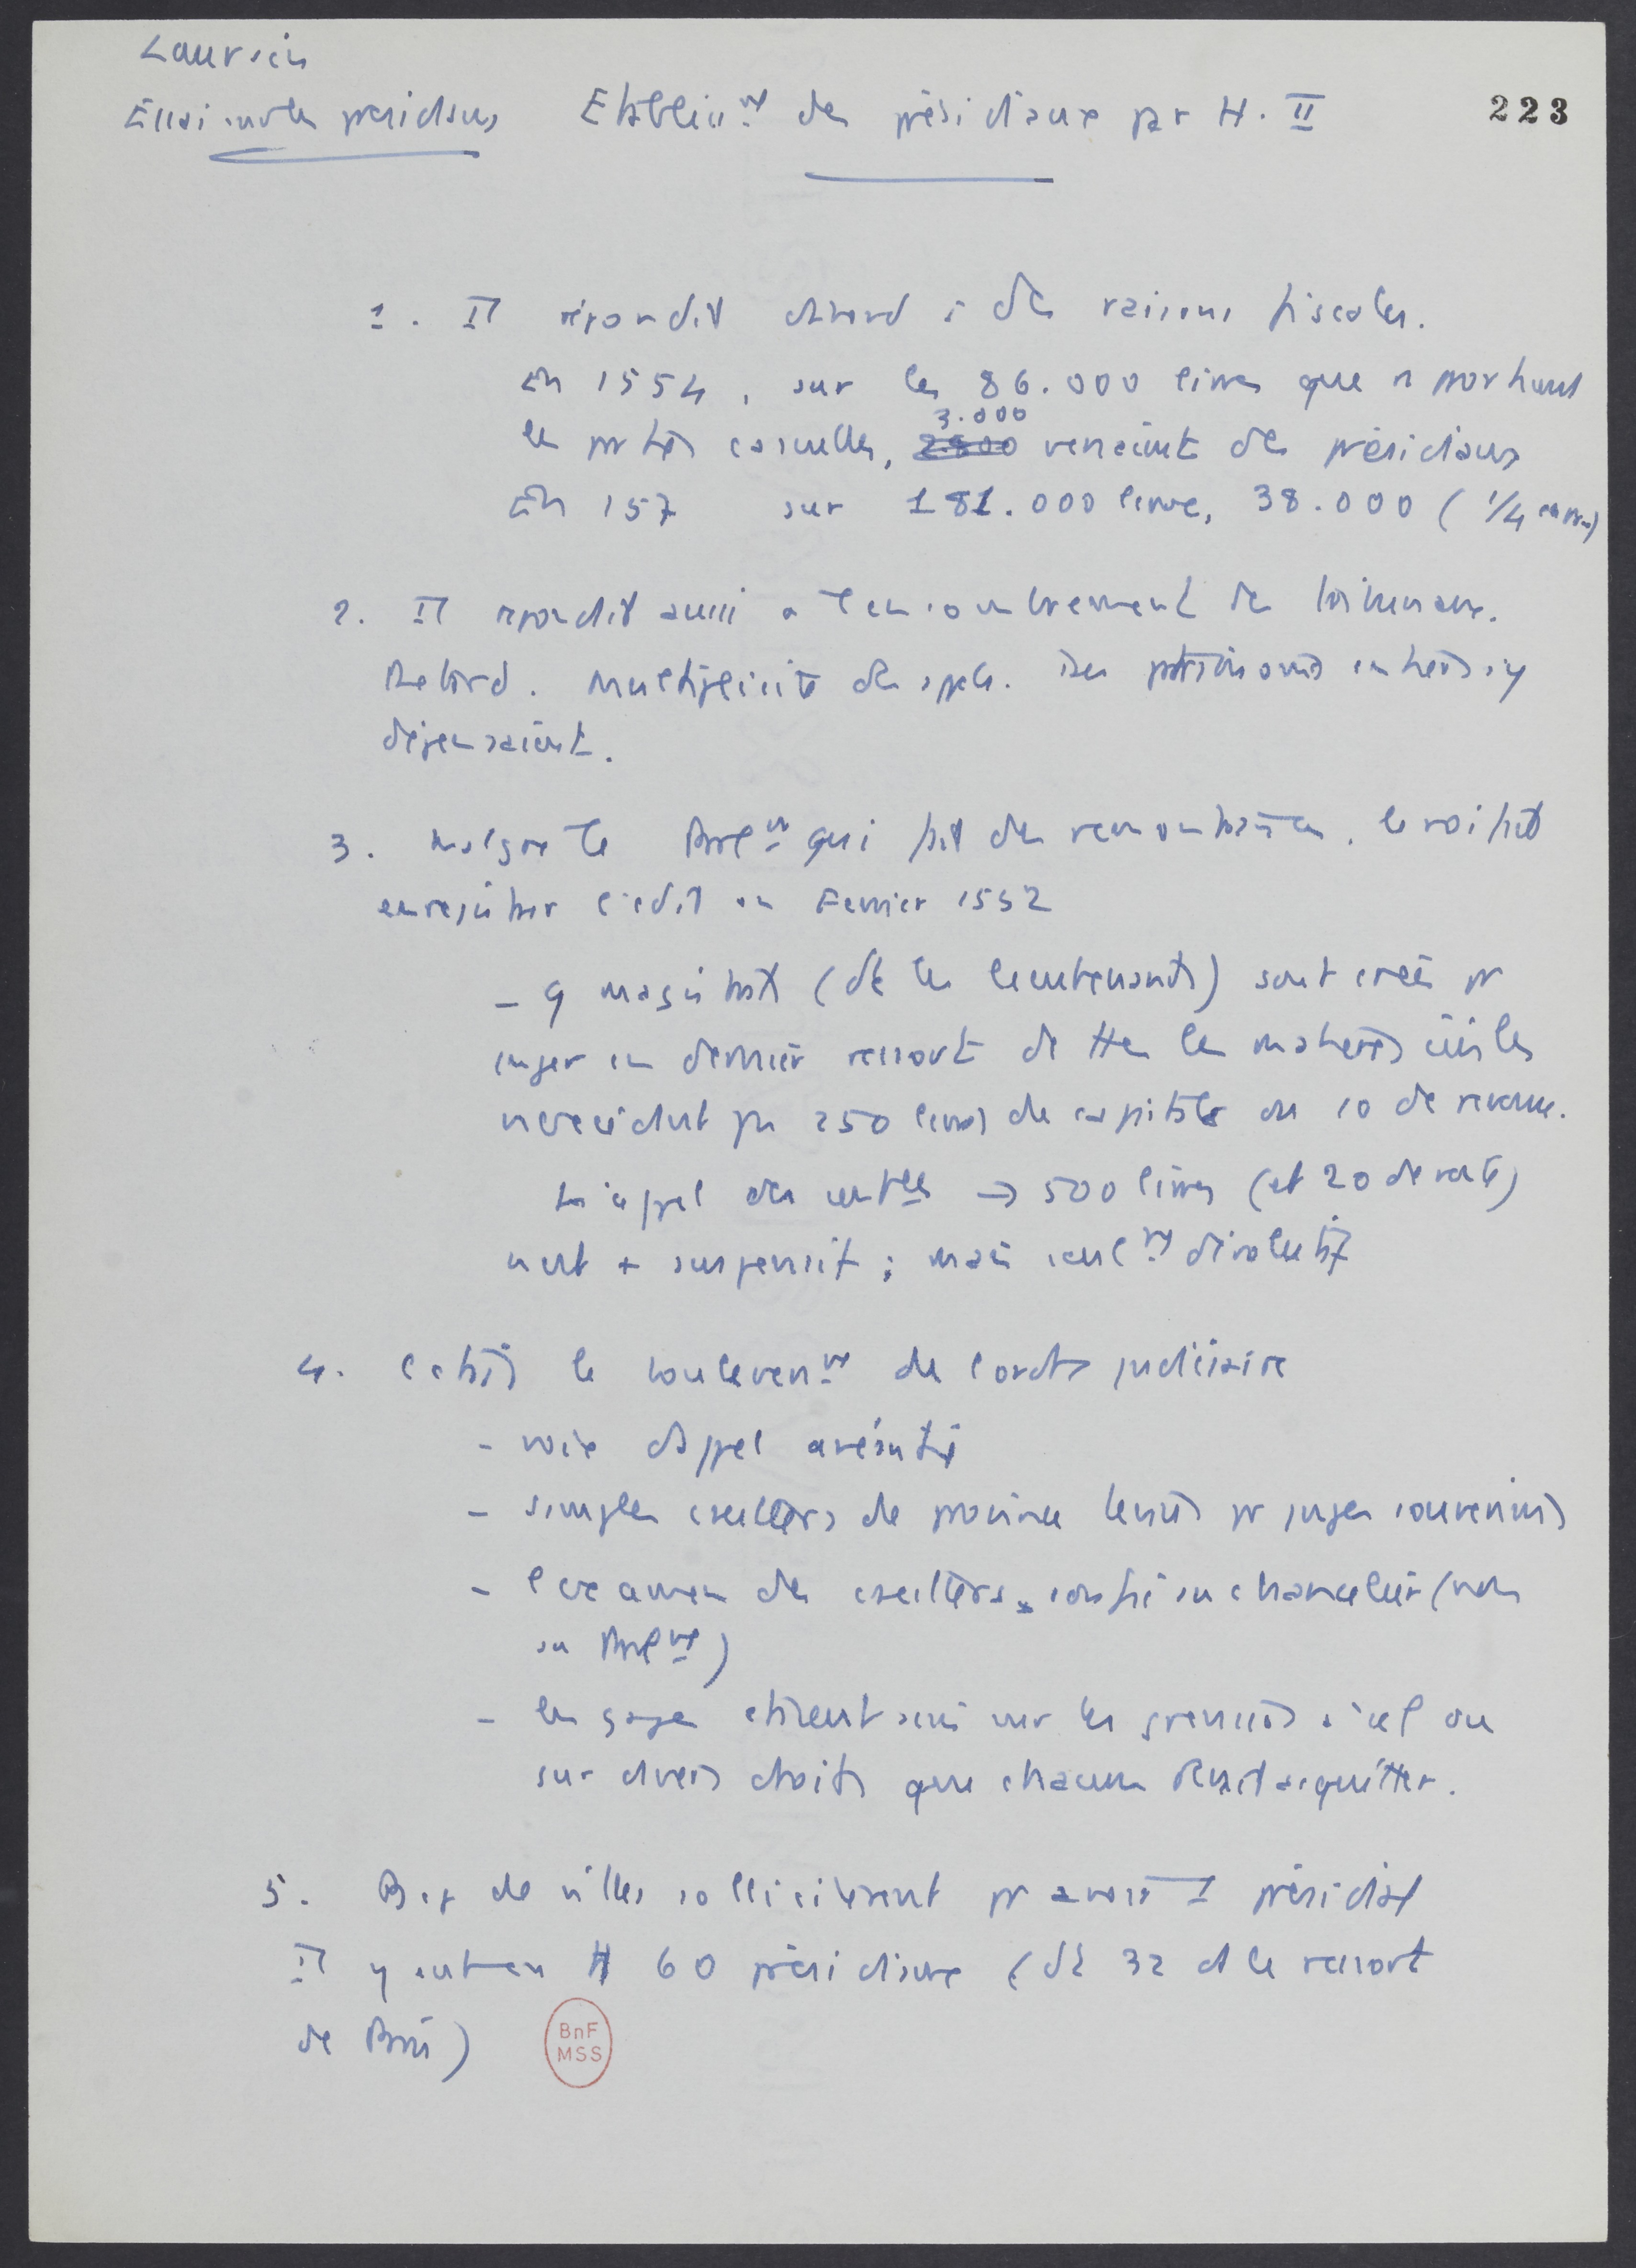 Laurain
Essai sur les présidiaux
Etabliss.nt des présidiaux par H. II
223
1. Il répondit d'abord à des raisons fiscales.
En 1554, sur les 86.000 livres que rapportaient
3.000
les parties casuelles, 2.800 venaient des présidiaux
En 157 sur 181.000 livres, 38.000 (1/4 env.)
2. Il répondit aussi à l'encombrement des tribunaux.
Retard. Multiplicité des appels. Des patrimoines entiers s'y
dépensaient.
3. Malgré le Parl.nt qui fit des remontrances, le roi fit
enregistrer l'édit en Février 1552
- 9 magistrats (dt les lieutenants) sont créés pr
juger en dernier ressort de ttes les matières civiles
n'excédant pas 250 livres de capital ou 10 de revenu.
L'appel des sentces → 500 livres (et 20 de rente)
n'est + suspensif ; mais seul.nt dévolutif
4. C'était le boulevers.nt de l'ordre judiciaire
- voie d'appel anéantie
- simples cseillers de province levés pr juger souverains
- l'examen des cseillers confié au chancelier (non
au Parl.nt)
- les gages étaient assis sur les greniers à sel ou
sur divers droits que chacun devait acquitter.
5. Bcp de villes sollicitèrent pr avoir 1 présidial
Il y eut en tt 60 présidiaux (dt 32 ds le ressort
de Paris)
BnF
MSS